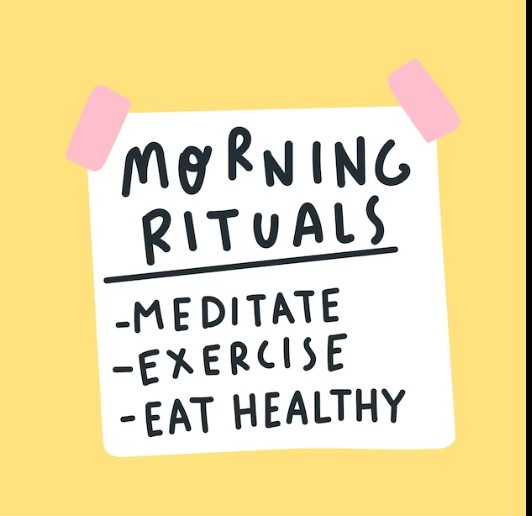 MORNING
RITUALS
-MEDITATE
-EXERCISE
-EAT HEALTHY